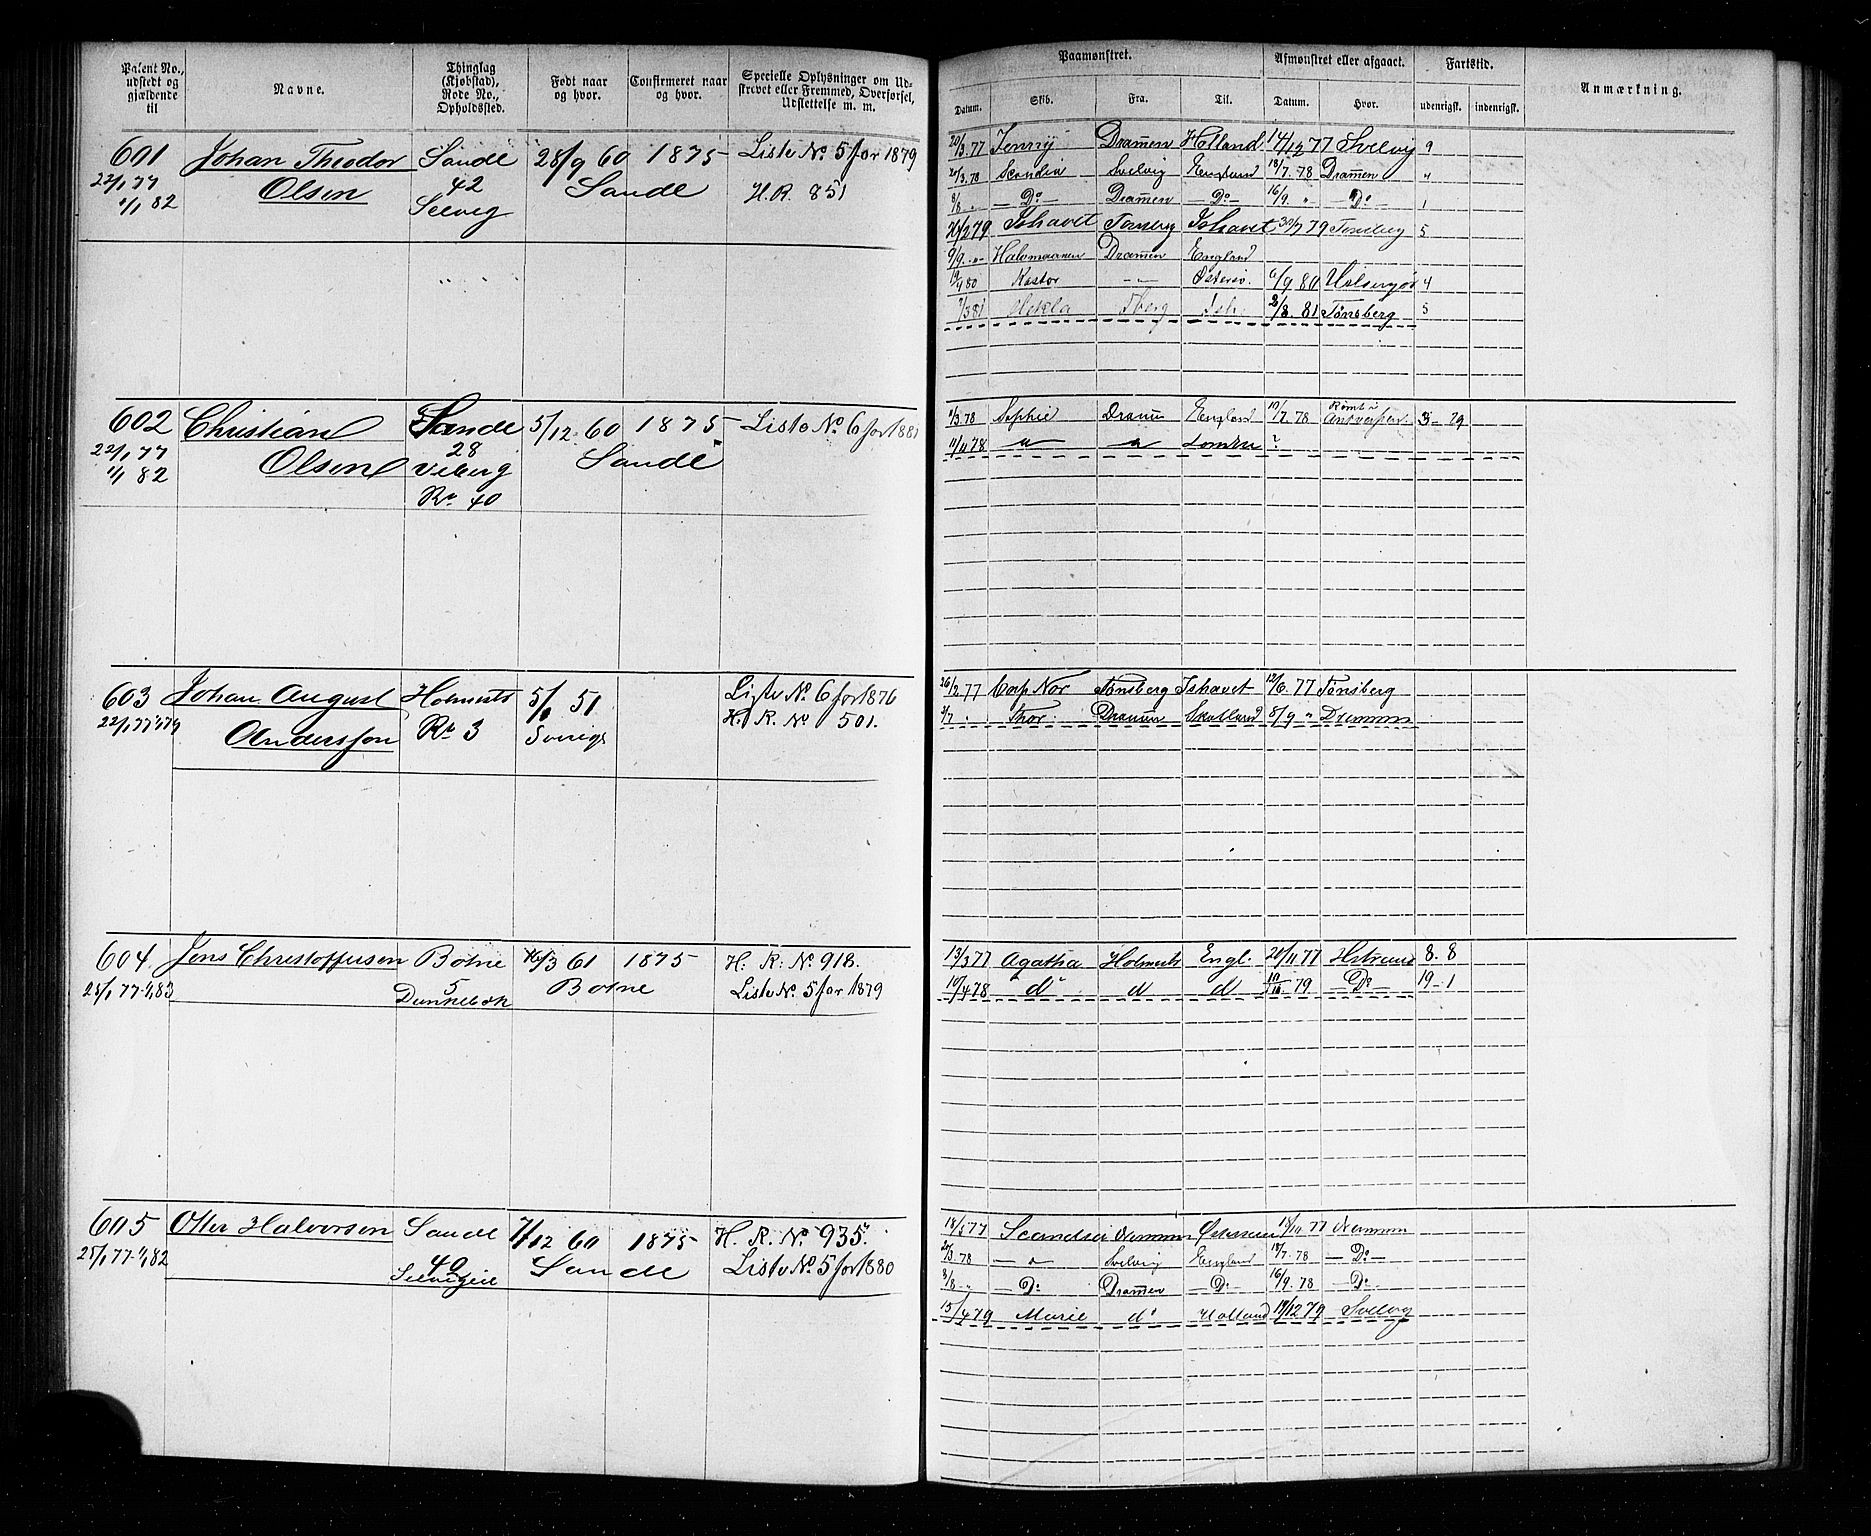 Patent No., udstedt og gjældende til
Navne.
Thinglag (Kjøbstad), Rode No., Opholdssted.
Født naar og hvor.
Confirmeret naar og hvor.
Specielle Oplysninger om Udstrevet eller Fremmed, Overførsel, Udslettelse m. m.
Paamønstret.
Afmønstret eller afgaaet.
Fartstid.
Anmærkning.
Datum. Skib. Fra. Til. Datum. Hvor. udenrigsk. indenrigsk.
601 Johan Theodor Sande 28/9 60 1875 Liste No. 5 for 1879
22/1 77 Olsen 42 Sande H. R. 851
1/1 82 Selvig
20/3 77 Jenny Dramen Holland 14/12 77 Svelvig 9
20/3 78 Scandia Svelvig England 18/7 78 Dramen "
8/8 " — Do — Dramen — Do — 16/9 " — Do 1
20/2 79 Ishavet Tonsberg Ishavet 30/7 79 Tonsberg 5
9/9 " Halvmaanen Dramen England
19/4 80 Kastor — " — Østersø. 6/9 80 4
7/3 81 Hekla Tberg Ish. 2/8 81 Tønsberg 5
602 Christian Sande 5/12 60 1875 Liste No. 6 for 1881
22/1 77 Olsen 28 Sande
1/1 82 Viberg
Ro. 40
1/3 78 Sophie Dramn England 10/7 78 Antverpen. 3 - 29
11/11 78 " " London ?
603 Johan August Holmests 5/ 51 Liste No. 6 for 1876
22/1 77 Andersson Ro. 3 Sverige H. R. No. 501.
26/2 77 Cap Nor Tønsberg Ishavet 12/6 77 Tønsberg
3/7 " Thor Dramn Skotland 8/9 " Drammen
604. Jens Christoffersen Botne 16/3 61 1875 H. R. No. 918.
25/1 77 - 1/1 83 5 Botne Liste No. 5 for 1879
Dunkebek
13/3 77 Agatha Holmests Engl. 20/11 77 Hstrand 8. 8
10/4 78 do d d 10/10 79 — Do — 19 - 1
605 Otter Halvorsen Sande 7/12 60 1875 H. R. No. 935.
25/1 77 - 1/1 82 40 Sande Liste No. 5 for 1880
Selvigeie
18/5 77 Scandia 77
20/3 78 — " — Svelvig England 18/7 78 — Do —
8/8 " — Do Dramen — Do — 16/9 78 — Do —
15/4 79 Marie do Holland 19/12 79 Svelvig